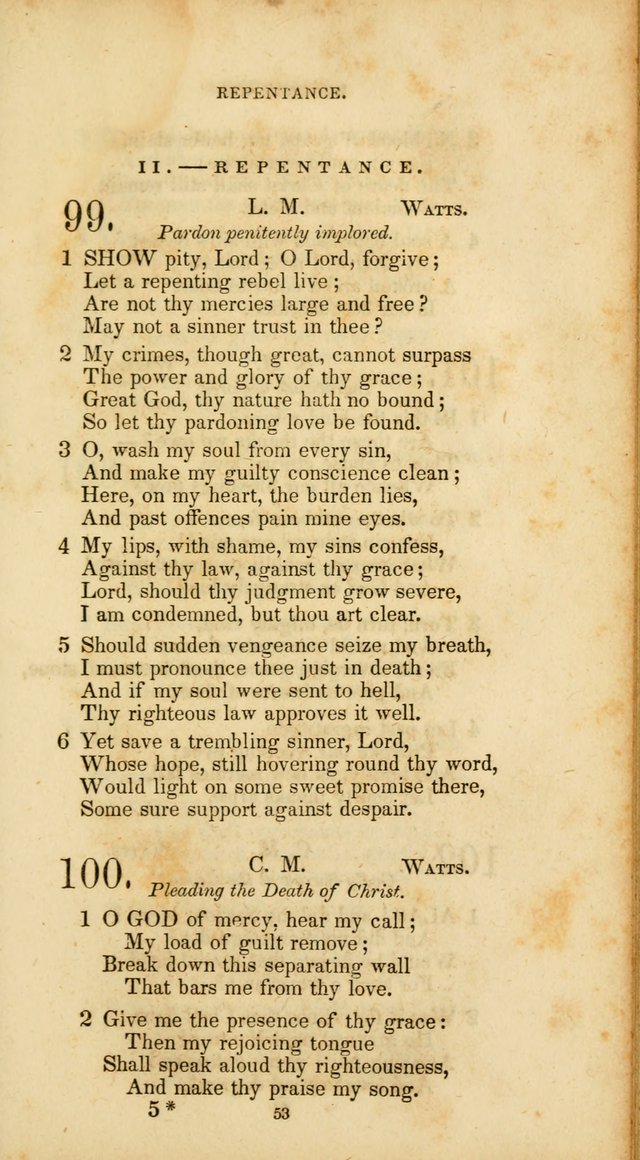 REPENTANCE.
II.—REPENTANCE.
99. L. M. WATTS.
Pardon penitently implored.
1 SHOW pity, Lord; O Lord, forgive;
Let a repenting rebel live;
Are not thy mercies large and free?
May not a sinner trust in thee?
2 My crimes, though great, cannot surpass
The power and glory of thy grace;
Great God, thy nature hath no bound;
So let thy pardoning love be found.
3 O, wash my soul from every sin,
And make my guilty conscience clean;
Here, on my heart, the burden lies,
And past offences pain mine eyes.
4 My lips, with shame, my sins confess,
Against thy law, against thy grace;
Lord, should thy judgment grow severe,
I am condemned, but thou art clear.
5 Should sudden vengeance seize my breath,
I must pronounce thee just in death;
And if my soul were sent to hell,
Thy righteous law approves it well.
6 Yet save a trembling sinner, Lord,
Whose hope, still hovering round thy word,
Would light on some sweet promise there,
Some sure support against despair.
100. C. M. WATTS.
Pleading the Death of Christ.
1 O GOD of mercy, hear my call;
My load of guilt remove;
Break down this separating wall
That bars me from thy love.
2 Give me the presence of thy grace:
Then my rejoicing tongue
Shall speak aloud thy righteousness,
And make thy praise my song.
5* 53